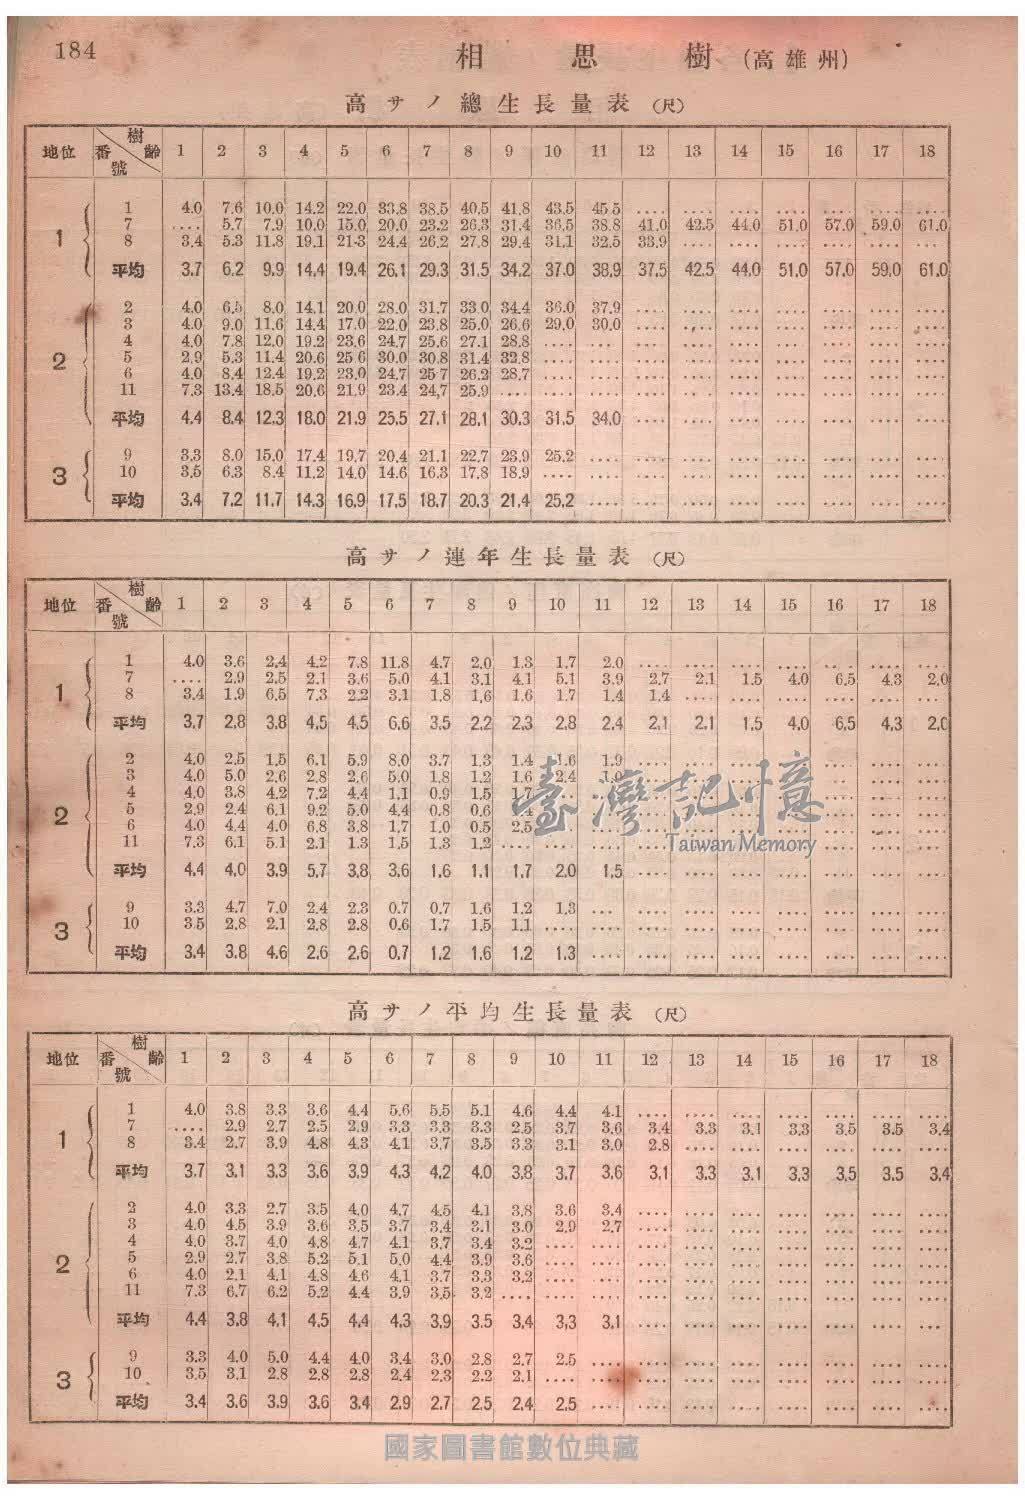 184
相思樹 (高雄州)
高サノ總生長量表 (尺)
地位 番號 樹齡 1 2 3 4 5 6 7 8 9 10 11 12 13 14 15 16 17 18
1 4.0 7.6 10.0 14.2 22.0 33.8 38.5 40.5 41.8 43.5 45.5 .... .... .... .... .... .... ....
7 .... 5.7 7.9 10.0 15.0 20.0 23.2 26.3 31.4 36.5 38.8 41.0 42.5 44.0 51.0 57.0 59.0 61.0
1 8 3.4 5.3 11.8 19.1 21.3 24.4 26.2 27.8 29.4 31.1 32.5 33.9 .... .... .... .... .... ....
平均 3.7 6.2 9.9 14.4 19.4 26.1 29.3 31.5 34.2 37.0 38.9 37.5 42.5 44.0 51.0 57.0 59.0 61.0
2 4.0 6.5 8.0 14.1 20.0 28.0 31.7 33.0 34.4 36.0 37.9 .... .... .... .... .... .... ....
3 4.0 9.0 11.6 14.4 17.0 22.0 23.8 25.0 26.6 29.0 30.0 .... .... .... .... .... .... ....
4 4.0 7.8 12.0 19.2 23.6 24.7 25.6 27.1 28.8 .... .... .... .... .... .... .... .... ....
2 5 2.9 5.3 11.4 20.6 25.6 30.0 30.8 31.4 32.8 .... .... .... .... .... .... .... .... ....
6 4.0 8.4 12.4 19.2 23.0 24.7 25.7 26.2 28.7 .... .... .... .... .... .... .... .... ....
11 7.3 13.4 18.5 20.6 21.9 23.4 24.7 25.9 .... .... .... .... .... .... .... .... .... ....
平均 4.4 8.4 12.3 18.0 21.9 25.5 27.1 28.1 30.3 31.5 34.0 .... .... .... .... .... .... ....
9 3.3 8.0 15.0 17.4 19.7 20.4 21.1 22.7 23.9 25.2 .... .... .... .... .... .... .... ....
3 10 3.5 6.3 8.4 11.2 14.0 14.6 16.3 17.8 18.9 .... .... .... .... .... .... .... .... ....
平均 3.4 7.2 11.7 14.3 16.9 17.5 18.7 20.3 21.4 25.2 .... .... .... .... .... .... .... ....
高サノ連年生長量表 (尺)
地位 番號 樹齡 1 2 3 4 5 6 7 8 9 10 11 12 13 14 15 16 17 18
1 4.0 3.6 2.4 4.2 7.8 11.8 4.7 2.0 1.3 1.7 2.0 .... .... .... .... .... .... ....
7 .... 2.9 2.5 2.1 3.6 5.0 4.1 3.1 4.1 5.1 3.9 2.7 2.1 1.5 4.0 6.5 4.3 2.0
1 8 3.4 1.9 6.5 7.3 2.2 3.1 1.8 1.6 1.6 1.7 1.4 1.4 .... .... .... .... .... ....
平均 3.7 2.8 3.8 4.5 4.5 6.6 3.5 2.2 2.3 2.8 2.4 2.1 2.1 1.5 4.0 6.5 4.3 2.0
2 4.0 2.5 1.5 6.1 5.9 8.0 3.7 1.3 1.4 1.6 1.9 .... .... .... .... .... .... ....
3 4.0 5.0 2.6 2.8 2.6 5.0 1.8 1.2 1.6 2.4 .... .... .... .... .... .... ....
4 4.0 3.8 4.2 7.2 4.4 1.1 0.9 1.5 1.7 .... .... .... .... .... .... .... .... ....
2 5 2.9 2.4 6.1 9.2 5.0 4.4 0.8 0.6 .... .... .... .... .... .... .... .... ....
6 4.0 4.4 4.0 6.8 3.8 1.7 1.0 0.5 2.5 .... .... .... .... .... .... .... .... ....
11 7.3 6.1 5.1 2.1 1.3 1.5 1.3 1.2 .... .... .... .... .... .... .... .... .... ....
平均 4.4 4.0 3.9 5.7 3.8 3.6 1.6 1.1 1.7 2.0 1.5 .... .... .... .... .... .... ....
9 3.3 4.7 7.0 2.4 2.3 0.7 0.7 1.6 1.2 1.3 ... .... .... .... .... .... .... ....
3 10 3.5 2.8 2.1 2.8 2.8 0.6 1.7 1.5 1.1 .... .... .... .... .... .... .... .... ....
平均 3.4 3.8 4.6 2.6 2.6 0.7 1.2 1.6 1.2 1.3 .... .... .... .... .... .... .... ....
臺灣記憶
Taiwan Memory
高サノ平均生長量表 (尺)
地位 番號 樹齡 1 2 3 4 5 6 7 8 9 10 11 12 13 14 15 16 17 18
1 4.0 3.8 3.3 3.6 4.4 5.6 5.5 5.1 4.6 4.4 4.1 .... .... .... .... .... .... ....
7 .... 2.9 2.7 2.5 2.9 3.3 3.3 3.3 2.5 3.7 3.6 3.4 3.3 3.1 3.3 3.5 3.5 3.4
1 8 3.4 2.7 3.9 4.8 4.3 4.1 3.7 3.5 3.3 3.1 3.0 2.8 .... .... .... .... .... ....
平均 3.7 3.1 3.3 3.6 3.9 4.3 4.2 4.0 3.8 3.7 3.6 3.1 3.3 3.1 3.3 3.5 3.5 3.4
2 4.0 3.3 2.7 3.5 4.0 4.7 4.5 4.1 3.8 3.6 3.4 .... .... .... .... .... .... ....
3 4.0 4.5 3.9 3.6 3.5 3.7 3.4 3.1 3.0 2.9 2.7 .... .... .... .... .... .... ....
4 4.0 3.7 4.0 4.8 4.7 4.1 3.7 3.4 3.2 .... .... .... .... .... .... .... .... ....
2 5 2.9 2.7 3.8 5.2 5.1 5.0 4.4 3.9 3.6 .... .... .... .... .... .... .... .... ....
6 4.0 2.1 4.1 4.8 4.6 4.1 3.7 3.3 3.2 .... .... .... .... .... .... .... .... ....
11 7.3 6.7 6.2 5.2 4.4 3.9 3.5 3.2 .... .... .... .... .... .... .... .... .... ....
平均 4.4 3.8 4.1 4.5 4.4 4.3 3.9 3.5 3.4 3.3 3.1 .... .... .... .... .... .... ...
9 3.3 4.0 5.0 4.4 4.0 3.4 3.0 2.8 2.7 2.5 .... .... .... .... .... .... .... ....
3 10 3.5 3.1 2.8 2.8 2.8 2.4 2.3 2.2 2.1 .... .... .... .... .... .... .... .... ....
平均 3.4 3.6 3.9 3.6 3.4 2.9 2.7 2.5 2.4 2.5 .... .... .... .... .... .... .... ....
國家圖書館數位典藏